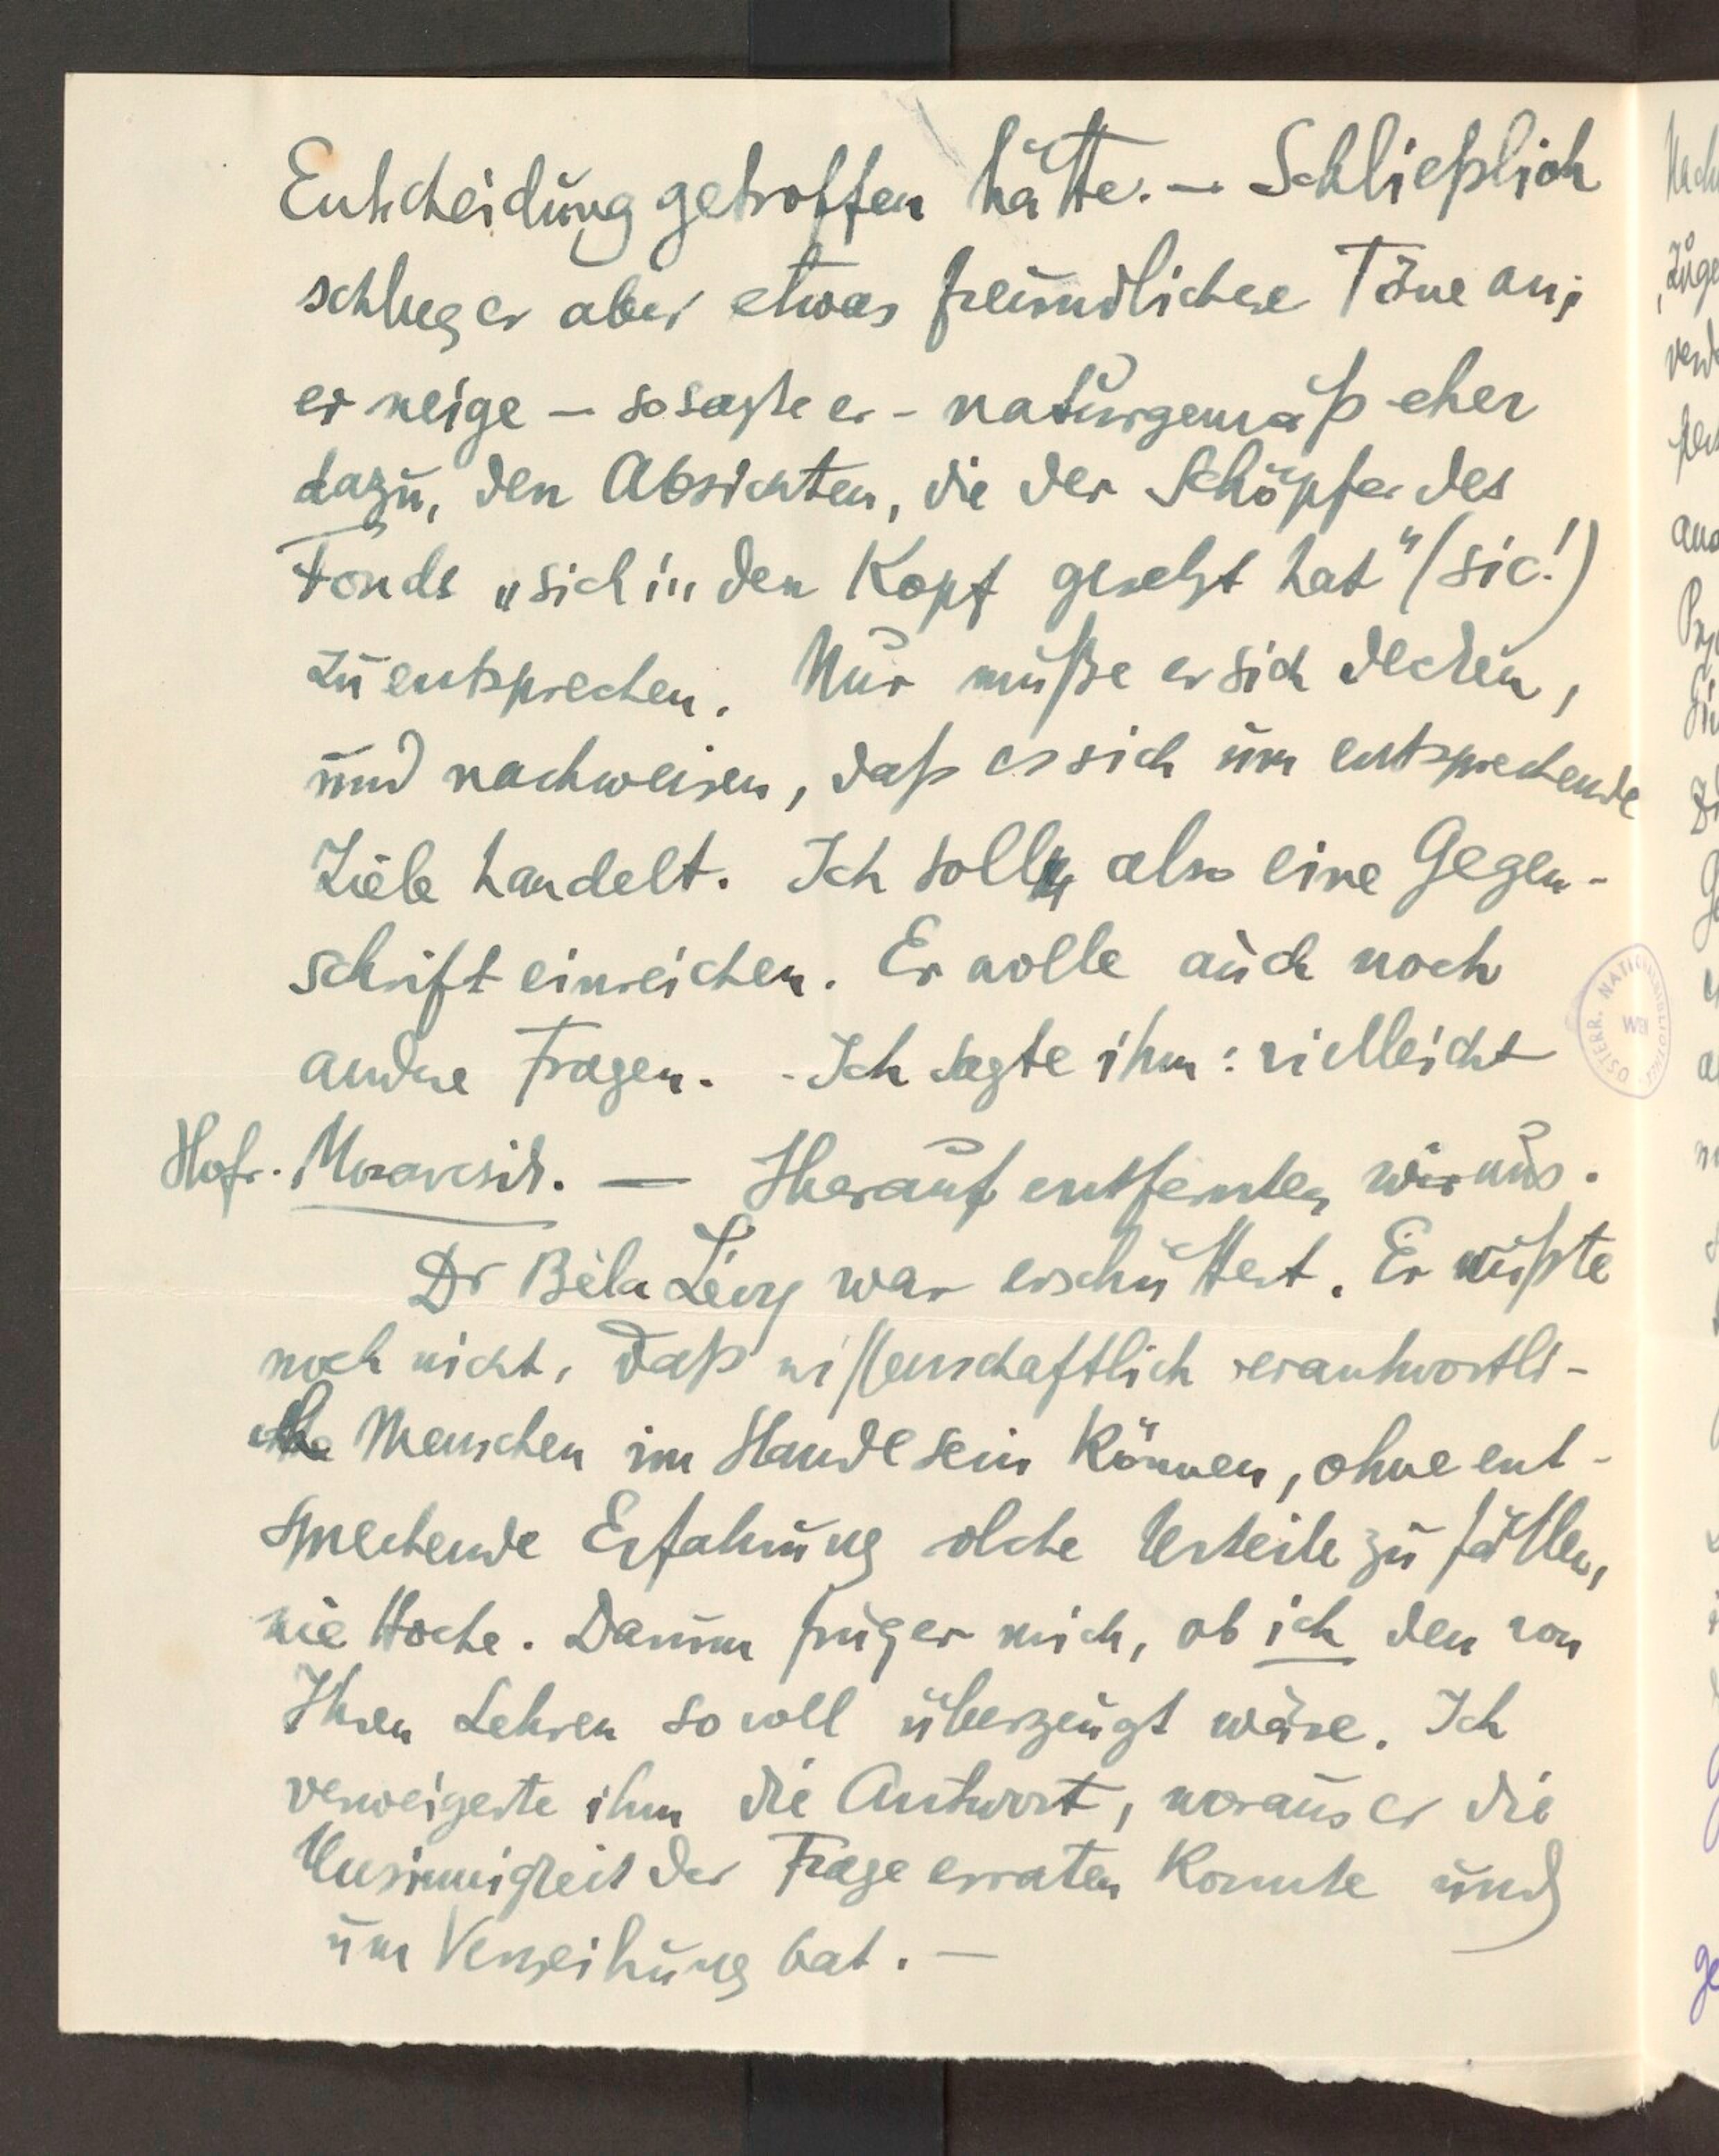 Entscheidung getroffen hätte. — Schließlich
schlug er aber etwas freundlichere Töne an;
er neige — so sagte er — naturgemäß eher
dazu, den Absichten, die der Schöpfer des
Fonds „sich in den Kopf gesetzt hat" (sic!)
zu entsprechen. Nur müße er sich decken,
und nachweisen, daß es sich um entsprechende
Ziele handelt. Ich solle also eine Gegen-
schrift einreichen. Er wolle auch noch
andre Fragen. - Ich sagte ihm: vielleicht
Hofr. Moravcsik. — Hierauf entfernten wir uns.
Dr Béla Lévy war erschüttert. Er wußte
noch nicht, daß wissenschaftlich verantwortli-
che Menschen im Stande sein können, ohne ent-
sprechende Erfahrung solche Urteile zu fällen,
wie Hoche. Dann frug er mich, ob ich den von
Ihren Lehren so voll überzeugt wäre. Ich
verweigerte ihm die Antwort, woraus er die
Unsinnigkeit der Frage erraten konnte und
um Verzeihung bat. —
ÖSTERR. NATIONALBIBLIOTHEK